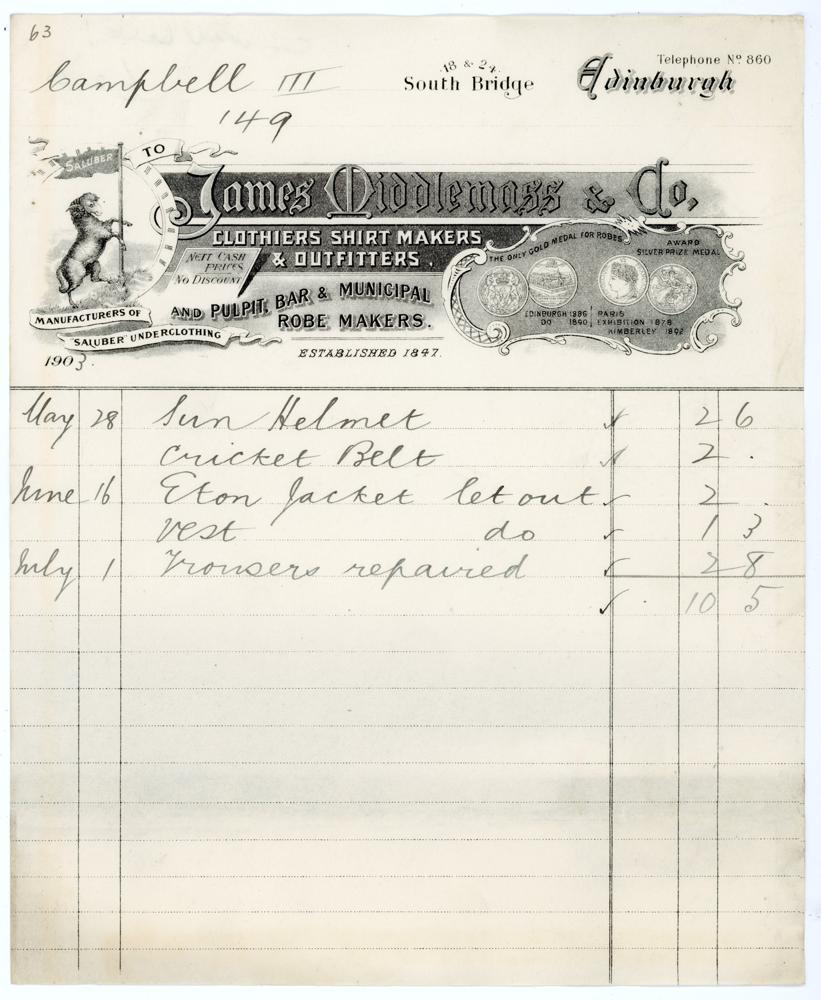 63
Campbell III
149
18 & 24
South Bridge
Telephone Nº 860
Edinburgh
SALUBER
TO
James Middlemass & Co,
CLOTHIERS SHIRT MAKERS
& OUTFITTERS.
NETT CASH
PRICES
NO DISCOUNT
AND PULPIT, BAR & MUNICIPAL
ROBE MAKERS.
THE ONLY GOLD MEDAL FOR ROBES
AWARD
SILVER PRIZE MEDAL
EDINBURGH 1886
DO 1890
PARIS
EXHIBITION 1878
KIMBERLEY 1892
MANUFACTURERS OF
"SALUBER" UNDERCLOTHING
ESTABLISHED 1847.
1903.
May 28 Sun Helmet 2 6
Cricket Belt 2 .
June 16 Eton Jacket let out 2 .
Vest do 1 3
July 1 Trousers repaired 2 8
10 5